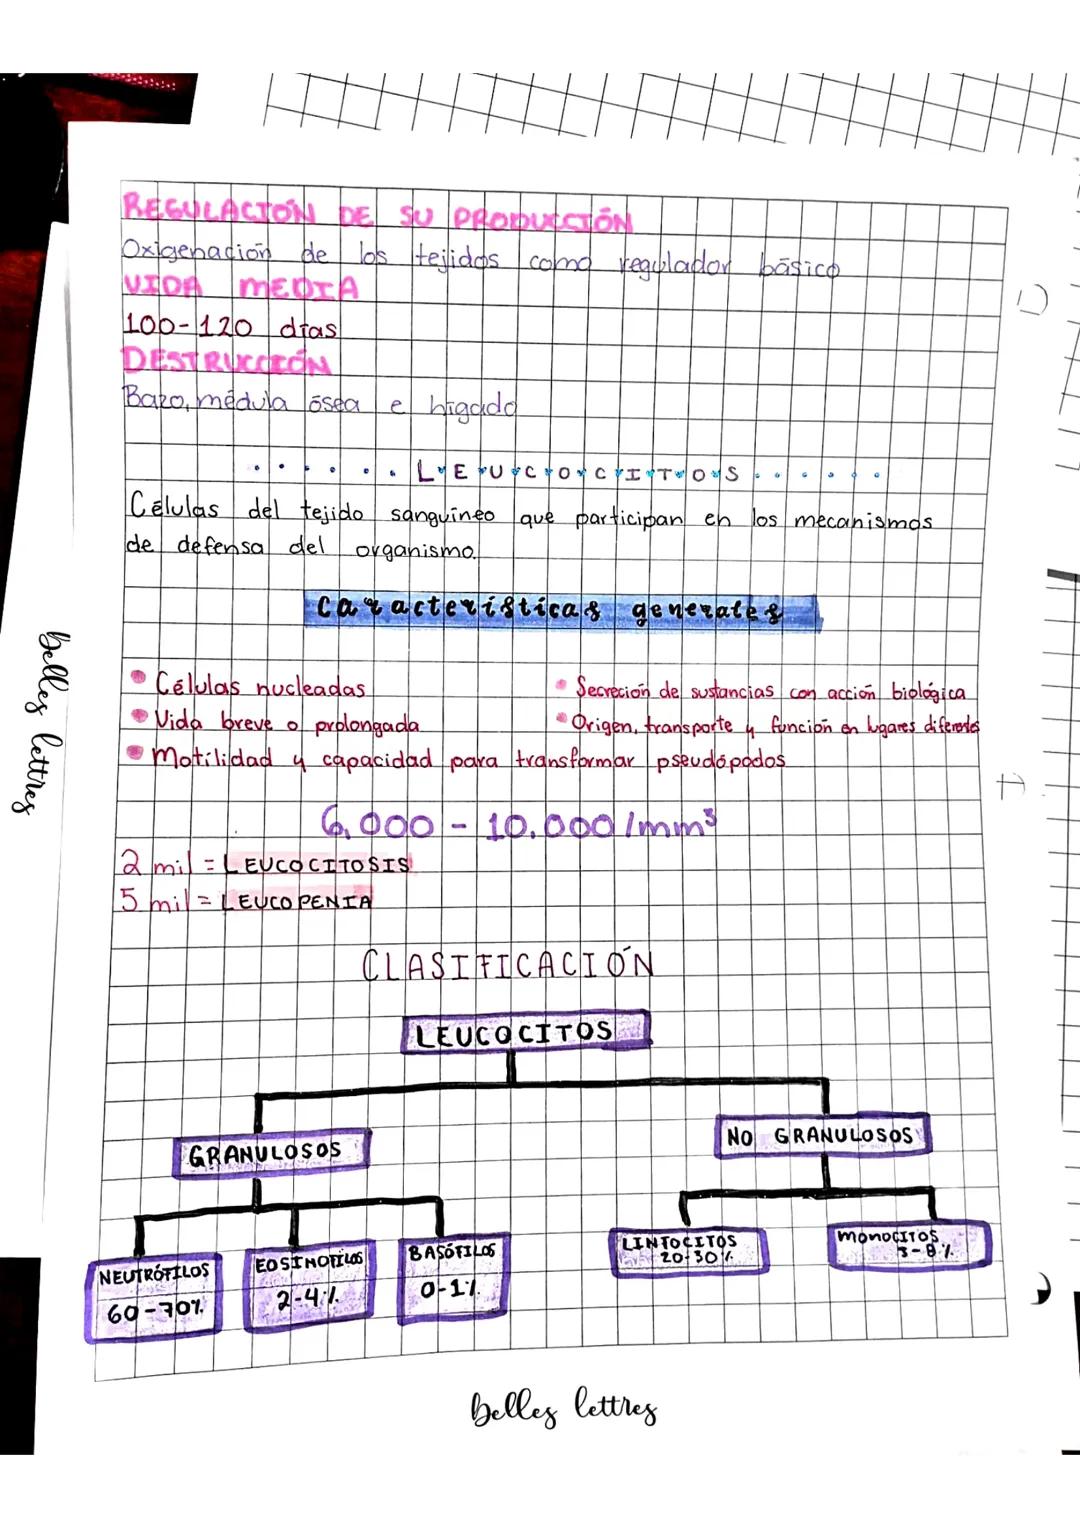 REGULACIÓN DE SU PRODUCCIÓN
Oxigenación de los tejidos como regulador básico
VIDA MEDIA
100-120 días
DESTRUCCIÓN
Bazo, médula ósea e hígado
LEUCOCITOS
Células del tejido sanguíneo que participan en los mecanismos
de defensa del organismo.
Características generales
• Células nucleadas
• Vida breve o prolongada
• Motilidad y capacidad para transformar pseudópodos
• Secreción de sustancias con acción biológica
• Origen, transporte y función en lugares diferentes
6.000 - 10.000/mm³
2 mil = LEUCOCITOSIS
5 mil = LEUCOPENIA
CLASIFICACIÓN
LEUCOCITOS
GRANULOSOS
NO GRANULOSOS
NEUTRÓFILOS
60-70%
EOSINOFILOS
2-4%
BASÓFILOS
0-1%
LINFOCITOS
20-30%
MONOCITOS
3-8%
belles lettres
belles lettres